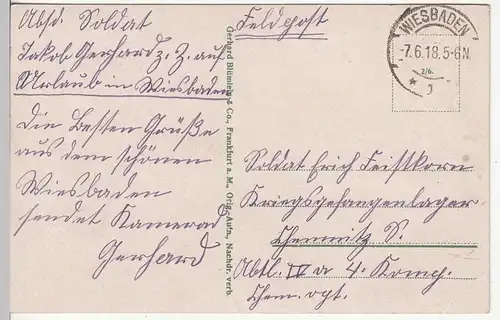 Absd. Soldat
Jakob Gerhard z. Z. auf
Urlaub in Wiesbaden
Die besten Grüße
aus dem schönen
Wiesbaden
sendet Kamerad
Gerhard
Gerhard Blümlein & Co., Frankfurt a. M., Orig.-Aufn., Nachdr. verb.
Feldpost
WIESBADEN
-7.6.18.5-6N.
* 1
2/6.
Soldat Erich Feistkorn
Kriegsgefangenenlager
Chemnitz S.
Abtl. IV a 4. Komp.